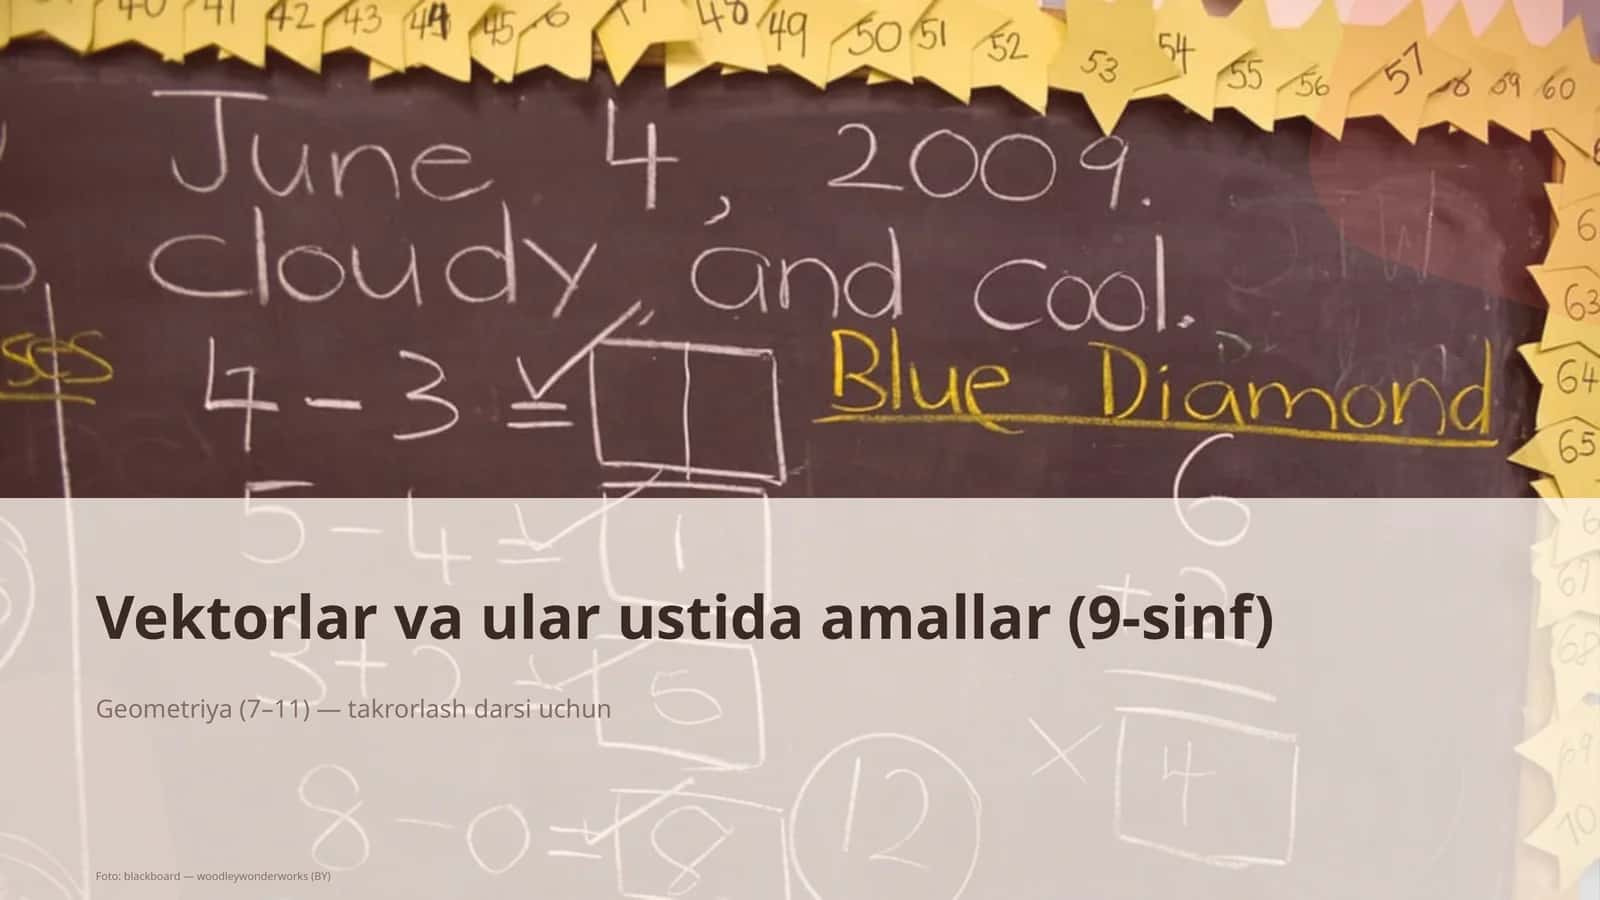 40 41 42 43 44 45 48 49 50 51 52 53 54 55 56 57 58 59 60
June 4, 2009.
cloudy, and cool.
63
ses
4 - 3 =
Blue Diamond
64
65
5 - 4 = 1
6
67
Vektorlar va ular ustida amallar (9-sinf)
68
5
Geometriya (7–11) — takrorlash darsi uchun
69
× 4
8 - 0 = 8
12
70
Foto: blackboard — woodleywonderworks (BY)